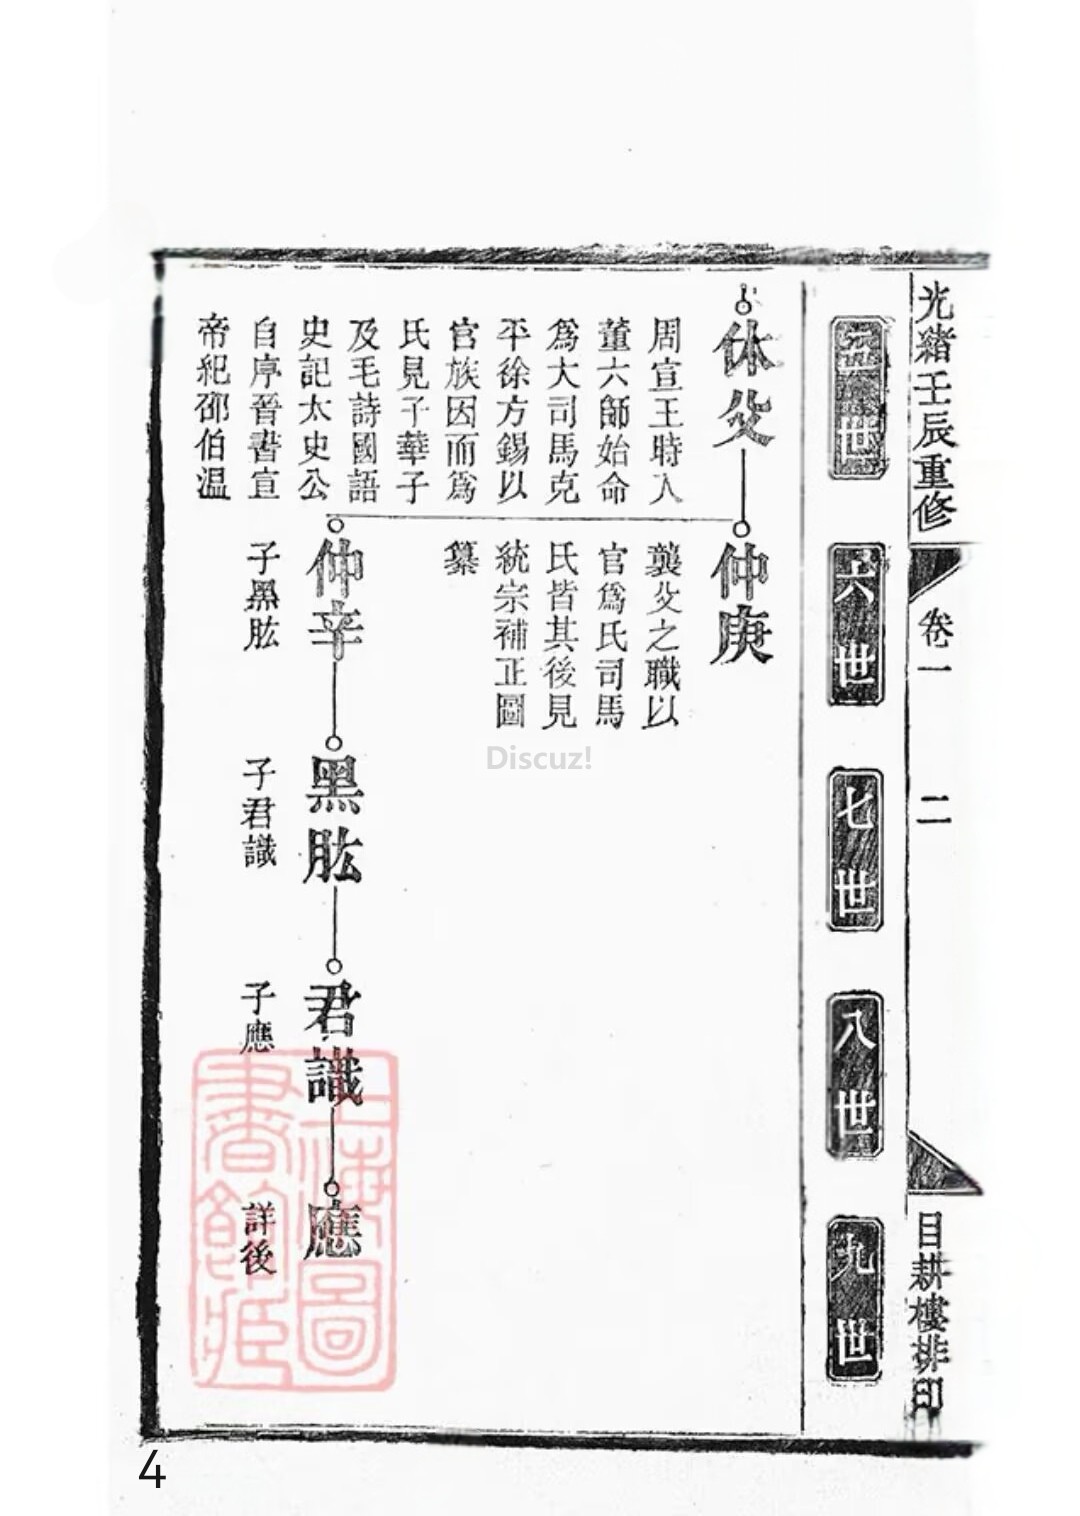 光緒壬辰重修
卷一
二
目耕樓排印
五世
六世
七世
八世
九世
休父
周宣王時入
董六師始命
爲大司馬克
平徐方錫以
官族因而爲
氏見子華子
及毛詩國語
史記太史公
自序晉書宣
帝紀邵伯溫
仲庚
襲父之職以
官爲氏司馬
氏皆其後見
統宗補正圖
纂
仲辛
子黑肱
黑肱
子君識
君識
子應
應
詳後
上海圖
書館藏
Discuz!
4